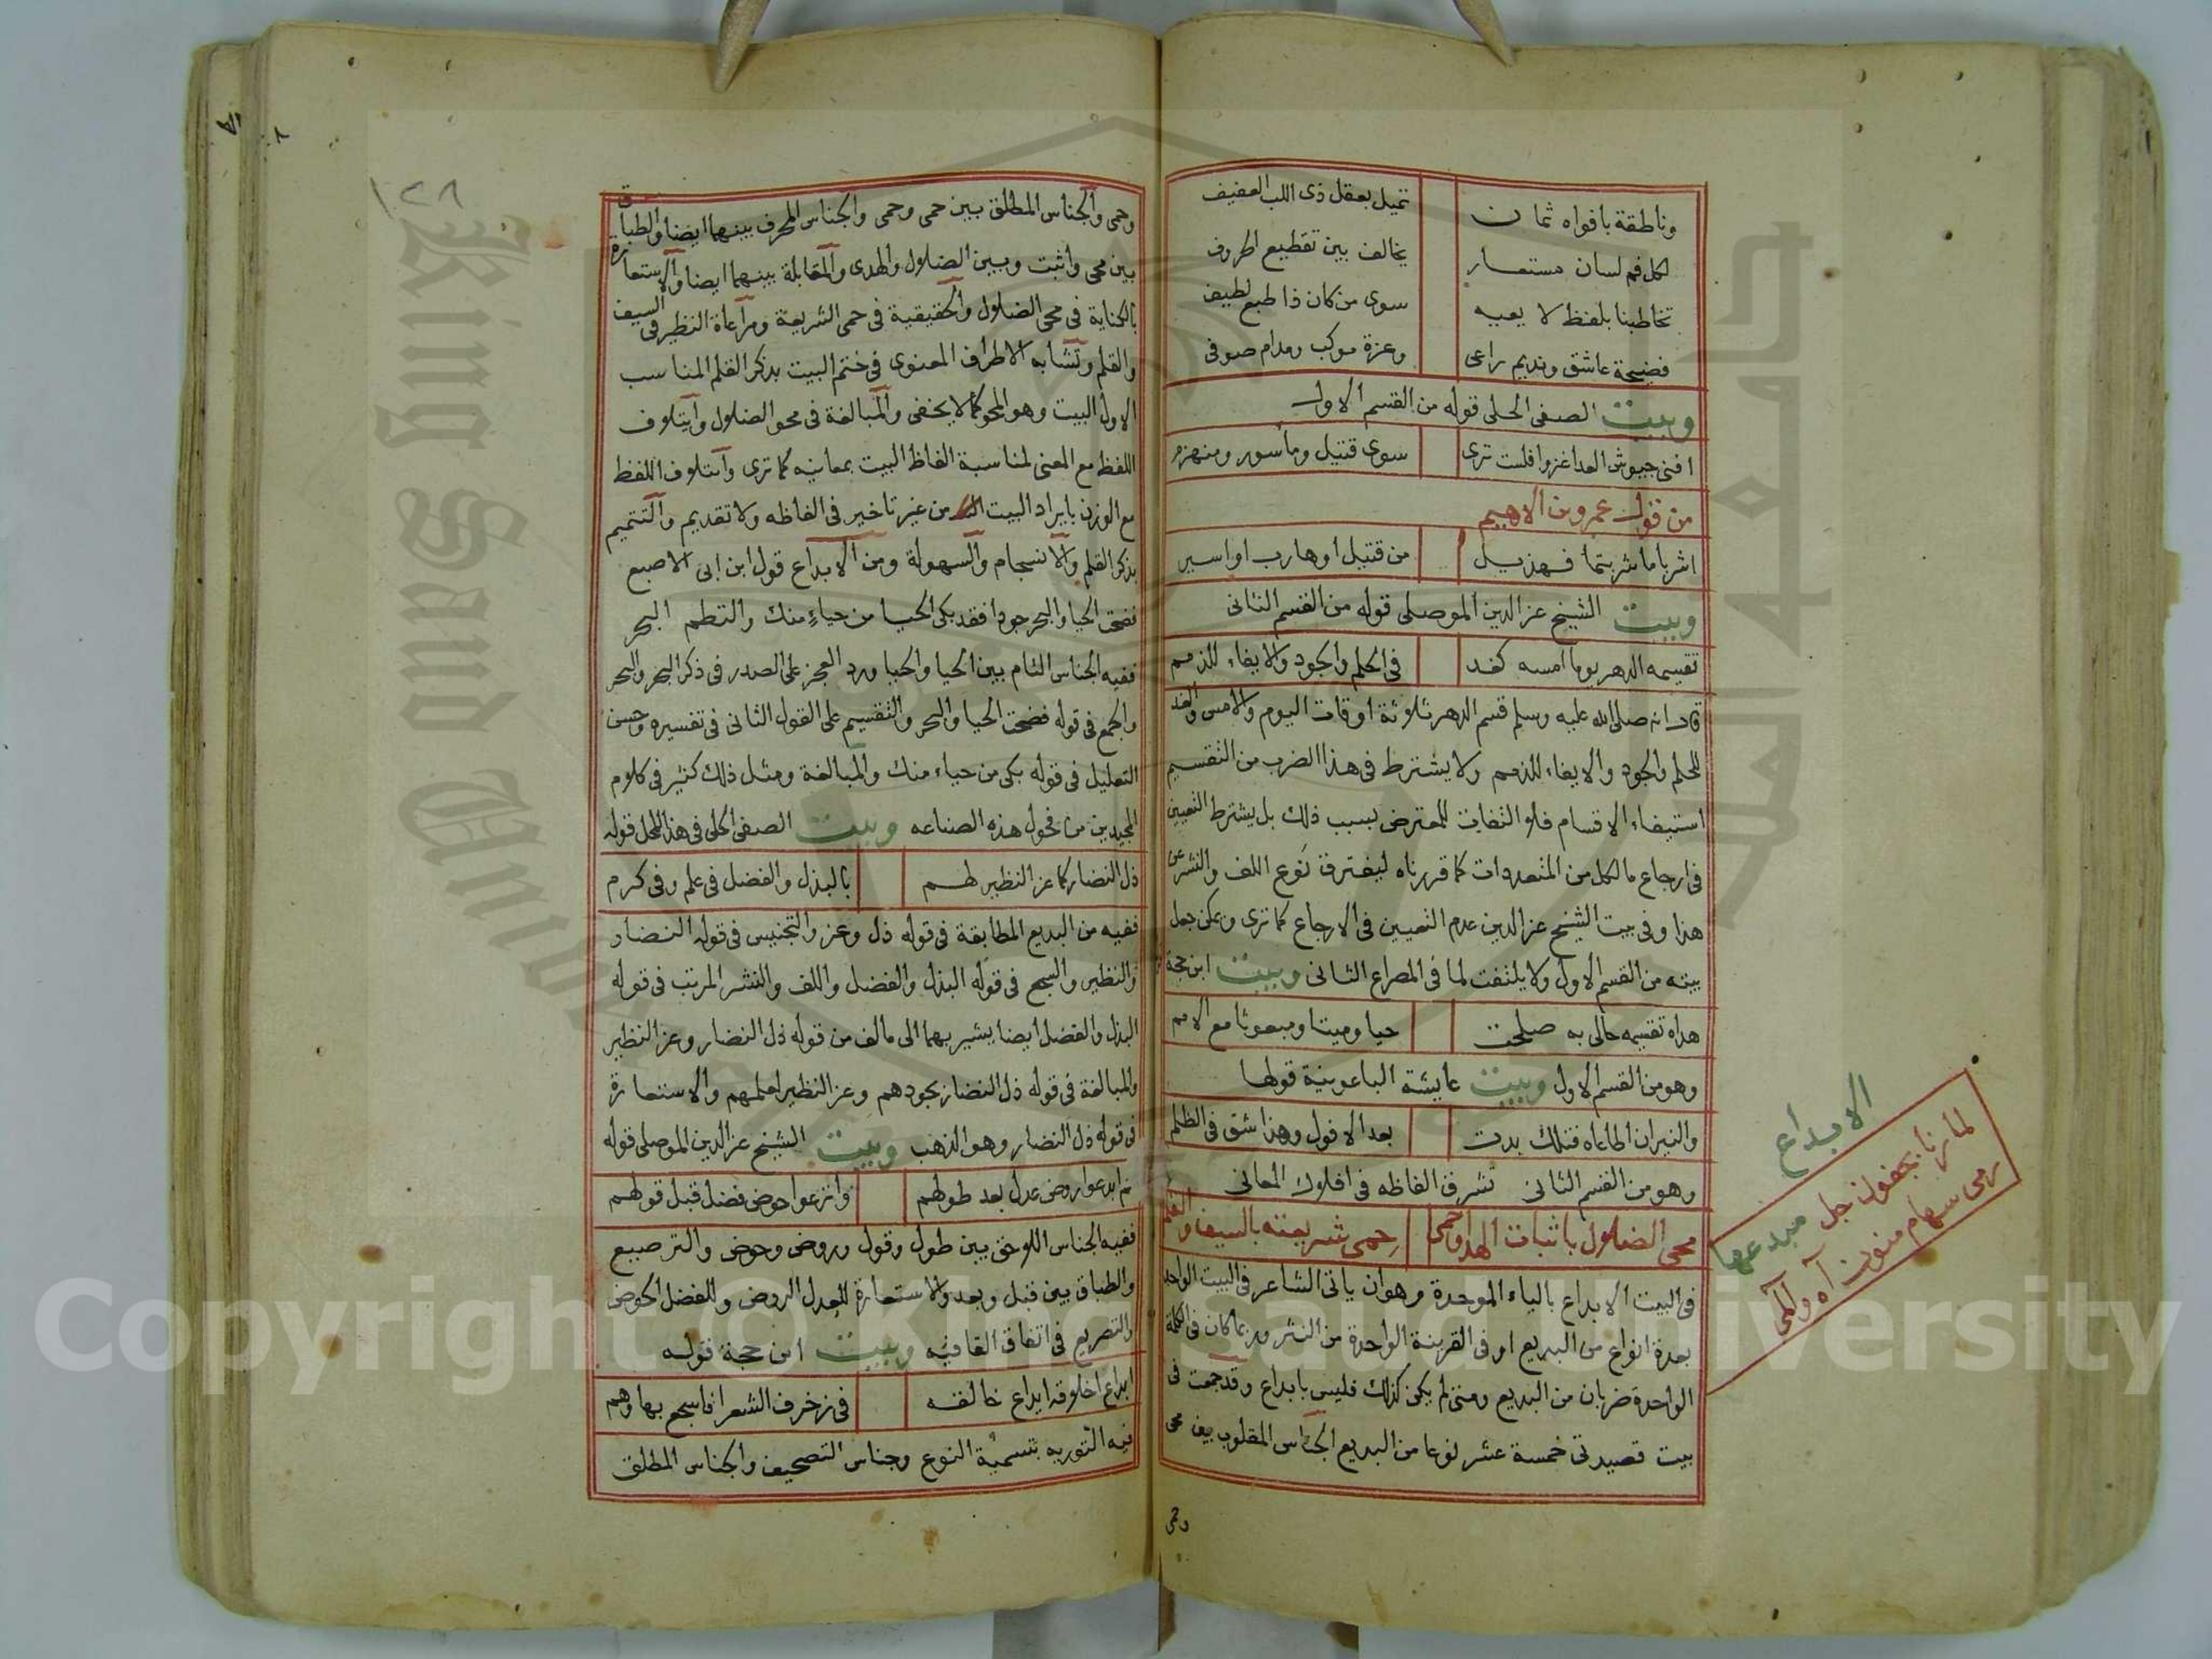 وناطقة بافواه ثمان تميل بعقل ذى اللب العفيف
لكل فم لسان مستعار يخالف بين تقطيع الحروف
تخاطبنا بلفظ لا يعيه سوى من كان ذا طبع لطيف
فضيحة عاشق ونديم راعى وعزة موكب ومدام صوفى
وبيت الصفى الحلى قوله من القسم الاول
افنى جيوش العدا غزوا فلست ترى سوى قتيل ومأسور ومنهزم
من قول عمرو بن الاهيم
اشربا ما شربتما فهذيل من قتيل او هارب او اسير
وبيت الشيخ عز الدين الموصلى قوله من القسم الثانى
تقسيمه الدهر يوما امسه كغد فى الحلم والجود والايفاء للذمم
قال انه صلى الله عليه وسلم قسم الدهر ثلاثة اوقات اليوم والامس والغد
للحلم والجود والايفاء للذمم ولا يشترط فى هذا الضرب من التقسيم
استيفاء الاقسام فلا التفات للمعترض بسبب ذلك بل يشترط التعيين
فى ارجاع ما لكل من المتعددات كما قررناه ليفترق نوع اللف والنشر عن
هذا وفى بيت الشيخ عز الدين عدم التعيين فى الارجاع كما ترى ويمكن جعل
بيته من القسم الاول ولا يلتفت لما فى المصراع الثانى وبيت ابن حجة
هداه تقسيمه حالى به صلحت حيا وميتا ومبعوثا مع الامم
وهو من القسم الاول وبيت عايشة الباعونية قولها
والنيران اطاعاه فتلك بدت بعد الافول وهذا شق فى الظلم
وهو من القسم الثانى تشرق الفاظه فى افلاك المعانى
محى الضلال باثبات الهدا وحمى حمى شريعته بالسيف والقلم
فى البيت الابداع بالباء الموحدة وهو ان ياتى الشاعر فى البيت الواحد
بعدة انواع من البديع او فى القرينة الواحدة من النثر وربما كان فى الكلمة
الواحدة ضربان من البديع ومتى لم يكن كذلك فليس بابداع وقد جمعت فى
بيت قصيدتى خمسة عشر نوعا من البديع الجناس المقلوب بين محى
وحمى
الابداع
لما رنا بجفون جل مبدعها
رمى سهام منون آه والمى
١٢٨
وحمى والجناس المطلق بين حمى وحمى والجناس المحرف بينهما ايضا والطباق
بين محى واثبت وبين الضلال والهدى والمقابلة بينهما ايضا والاستعارة
بالكناية فى محى الضلال والحقيقية فى حمى الشريعة ومراعاة النظير فى السيف
والقلم وتشابه الاطراف المعنوى فى ختم البيت بذكر القلم المناسب
الاول البيت وهو المحو كما لا يخفى والمبالغة فى محو الضلال وايتلاف
اللفظ مع المعنى لمناسبة الفاظ البيت بمعانيه كما ترى وايتلاف اللفظ
مع الوزن بايراد البيت من غير تاخير فى الفاظه ولا تقديم والتتميم
بذكر القلم والانسجام والسهولة ومن الابداع قول ابن ابى الاصبع
فضحت الحيا والبحر جودا فقد بكى الحيا من حياءٍ منك والتطم البحر
ففيه الجناس التام بين الحيا والحيا ورد العجز على الصدر فى ذكر البحر والبحر
والجمع فى قوله فضحت الحيا والبحر والتقسيم على القول الثانى فى تفسيره وحسن
التعليل فى قوله بكى من حياء منك والمبالغة ومثل ذلك كثير فى كلام
المجيدين من فحول هذه الصناعه وبيت الصفى الحلى فى هذا المحل قوله
ذل النضار كما عز النظير لهم بالبذل والفضل فى علم وفى كرم
ففيه من البديع المطابقة فى قوله ذل وعز والتجنيس فى قوله النضار
والنظير والسجع فى قوله البذل والفضل واللف والنشر المرتب فى قوله
البذل والفضل ايضا يشير بهما الى مالف من قوله ذل النضار وعز النظير
والمبالغة فى قوله ذل النضار بجودهم وعز النظير لعلمهم والاستعارة
فى قوله ذل النضار وهو الذهب وبيت الشيخ عز الدين الموصلى قوله
كم ابدعوا روض عدل بعد طولهم وانزعوا حوض فضل قبل قولهم
ففيه الجناس اللاحق بين طول وقول وروض وحوض والترصيع
والطباق بين قبل وبعد والاستعارة للعدل الروض وللفضل الحوض
والتصريع فى اتفاق القافيه وبيت ابن حجة قوله
ابداع اخلاقه ايداع خالقه فى زخرف الشعرا فاسجع بها وهم
فيه التوريه بتسمية النوع وجناس التصحيف والجناس المطلق
King Saud University
جامعة الملك سعود
Copyright © King Saud University